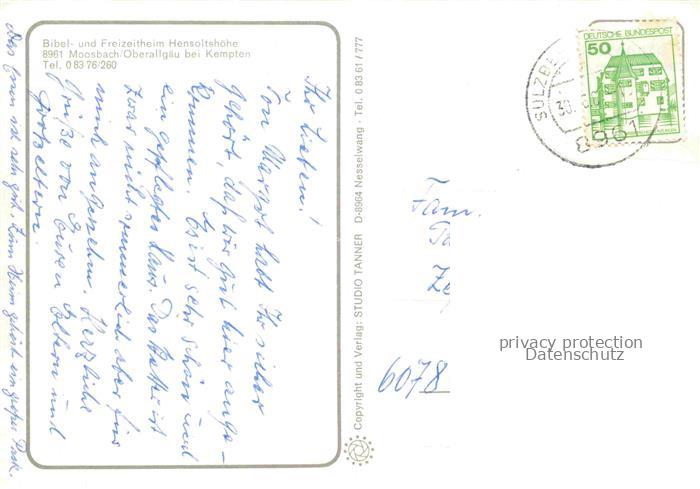 Bibel- und Freizeitheim Hensoltshöhe
8961 Moosbach/Oberallgäu bei Kempten
Tel. 0 83 76/260
Ihr Lieben!
Von Margot habt Ihr sicher
gehört, daß wir gut hier ange-
kommen. Es ist sehr schön und
ein gepflegtes Haus. Das Wetter ist
zwar nicht sommerlich aber für
mich angenehm. Herzliche
Grüße von Euren Eltern und
Großeltern.
Das Essen ist sehr gut. Zum Heim gehört ein großer Park.
Copyright und Verlag: STUDIO TANNER D-8964 Nesselwang · Tel. 0 83 61 / 777
DEUTSCHE BUNDESPOST
50
SULZBE
8961
Fam.
6078
privacy protection
Datenschutz